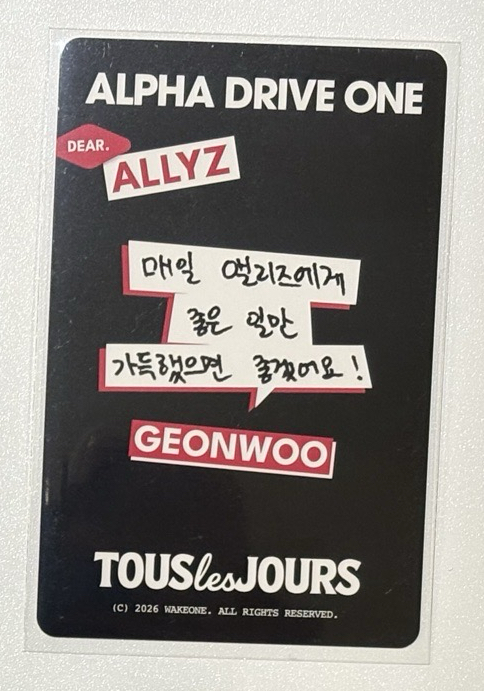 ALPHA DRIVE ONE
DEAR.
ALLYZ
매일 앨리즈에게
좋은 일만
가득했으면 좋겠어요!
GEONWOO
TOUS les JOURS
(C) 2026 WAKEONE. ALL RIGHTS RESERVED.